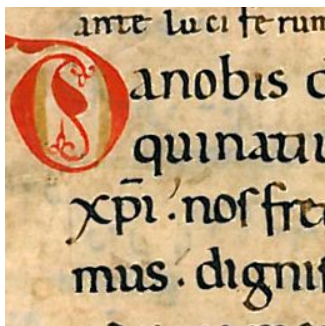 ante luciferum
Da nobis d
qui natiu
xp̄i. nos fre
mus. dignis